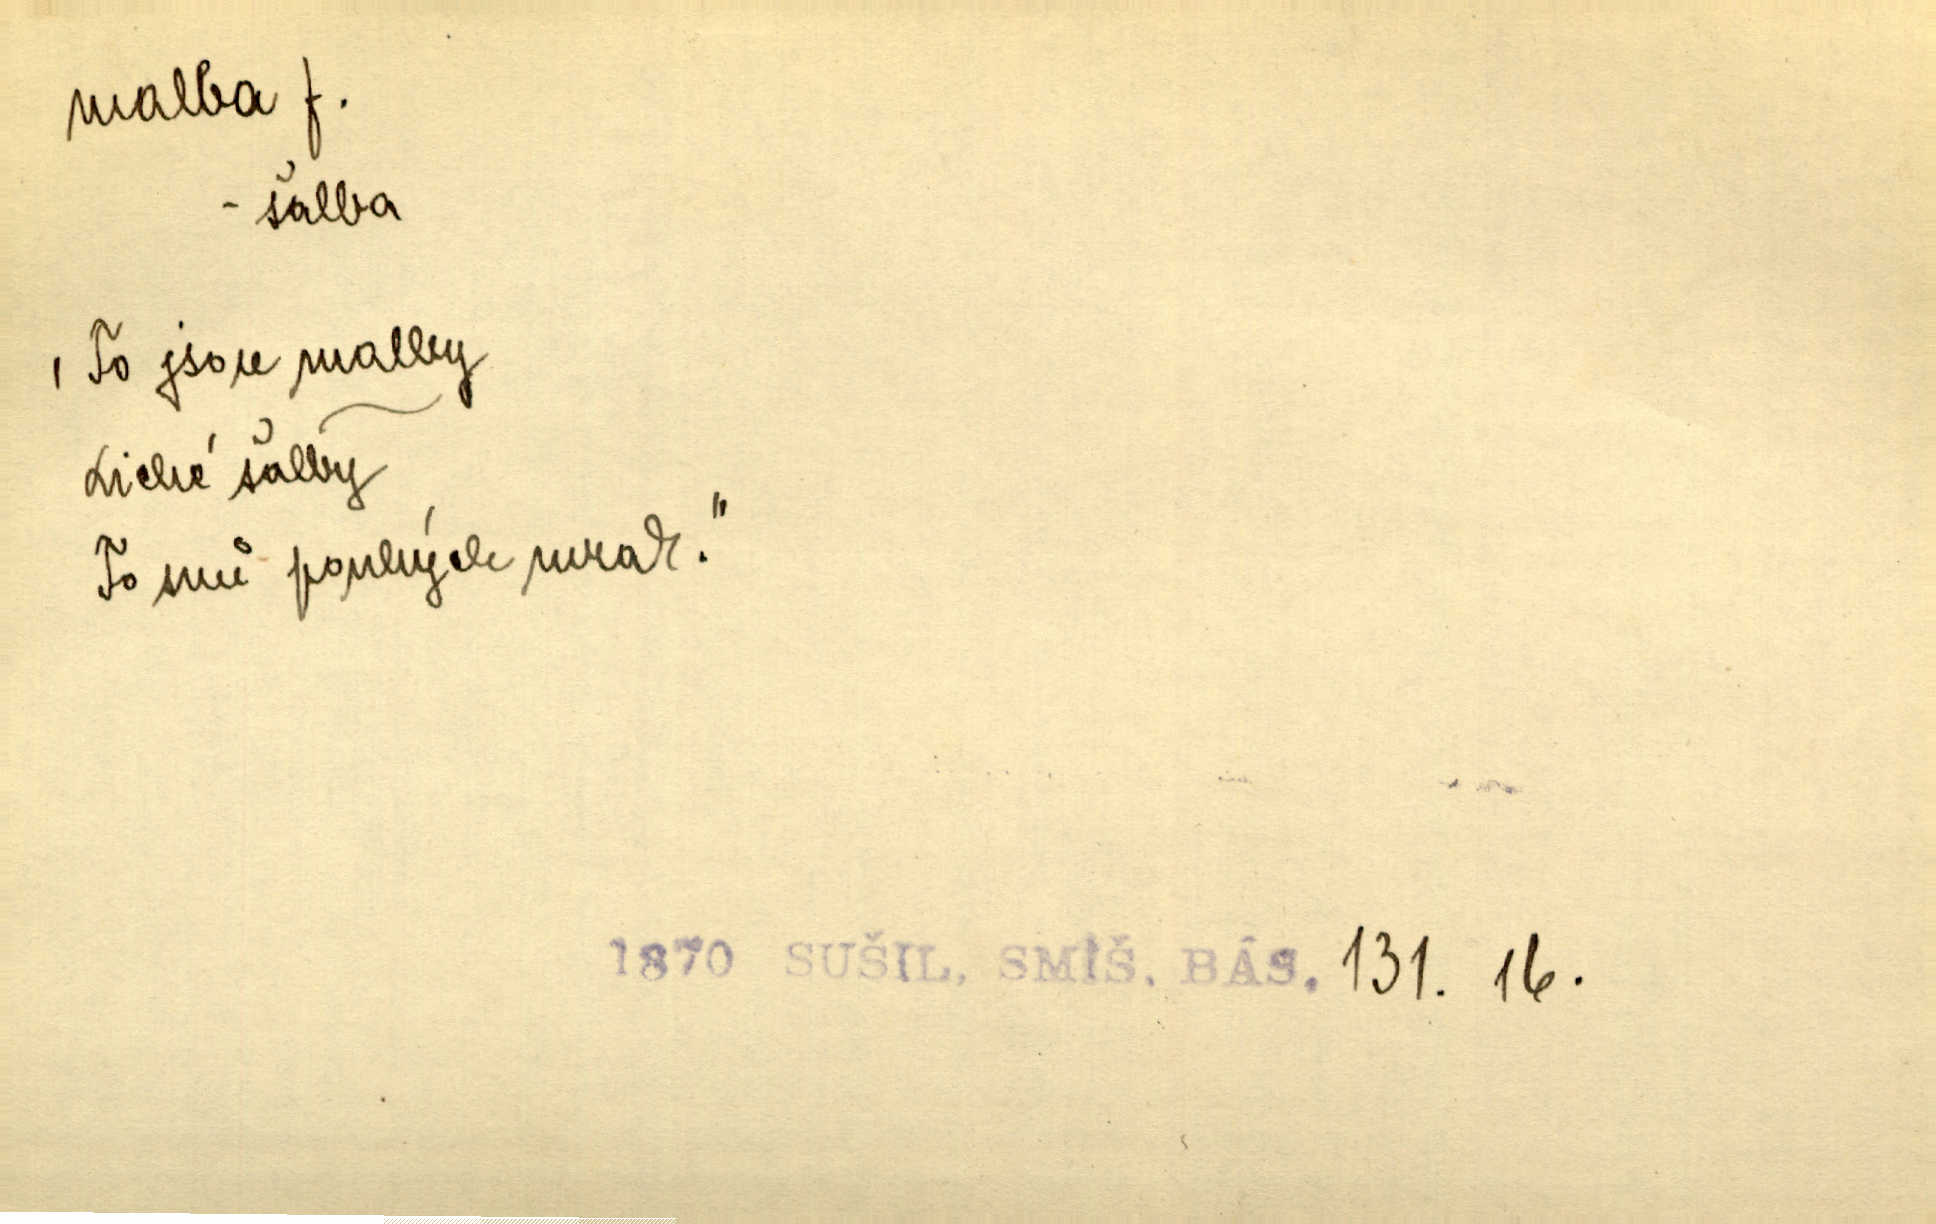 malba f.
- šalba
„To jsou malby
Liché šalby
To snů pouhých mrak."
1870 SUŠIL, SMÍŠ. BÁS. 131. 16.